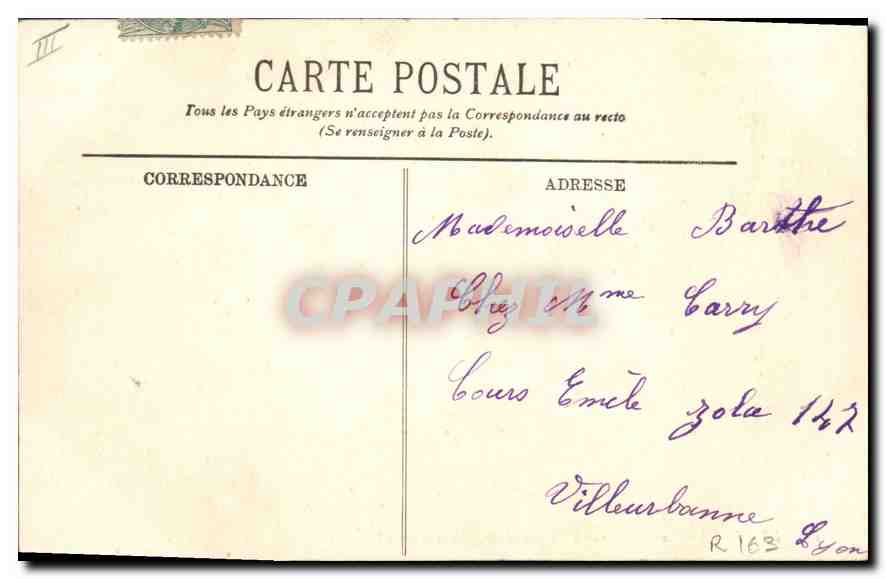 III
CARTE POSTALE
Tous les Pays étrangers n'acceptent pas la Correspondance au recto
(Se renseigner à la Poste).
CORRESPONDANCE
ADRESSE
Mademoiselle Barthe
Chez Mme Carry
Cours Emile Zola 147
Villeurbanne
Lyon
R 163
CPAPHIL